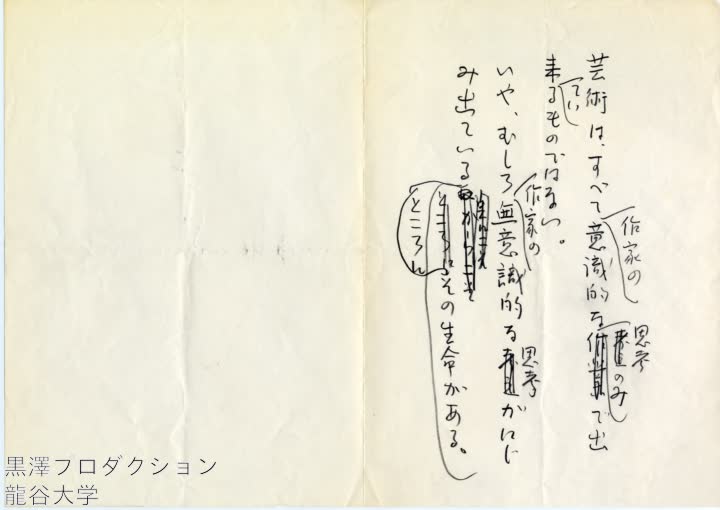 芸術は、すべて作家の意識的な思考のみで出
来ているものではない。
いや、むしろ作家の無意識的な思考がにじ
み出ているところにその生命がある。
黒澤プロダクション
龍谷大学